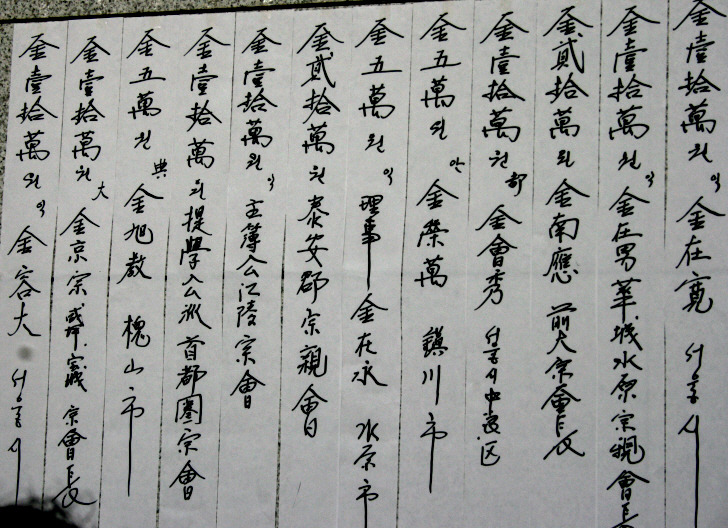 金壹拾萬원 익 金在寬 서울시
金壹拾萬원 익 金在男 華城水原宗親會長
金貳拾萬원 金南應 前大宗會長
金壹拾萬원 都 金會秀 서울시中區
金五萬원 안 金榮萬 鎭川市
金五萬원 익 理事 金在永 水原市
金貳拾萬원 泰安郡宗親會
金壹拾萬원 익 主簿公江陵宗會
金壹拾萬원 提學公派首都圈宗會
金五萬원 典 金旭敎 槐山市
金壹拾萬원 大 金京宗 宗會長
金壹拾萬원 익 金容大 서울시